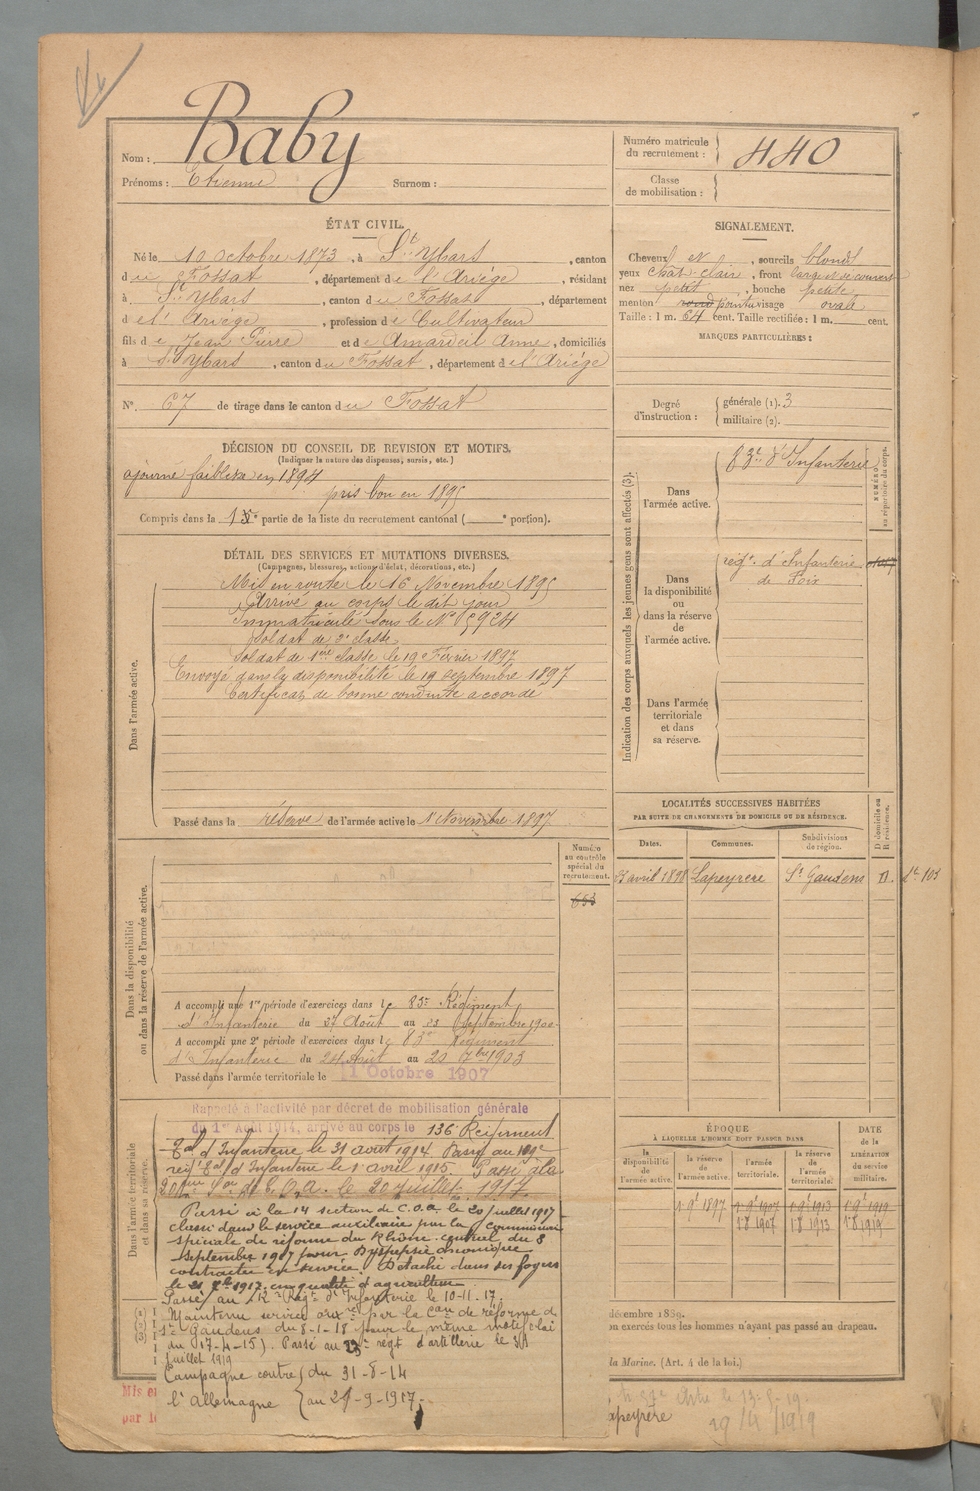 Nom : Baby
Prénoms : Etienne Surnom :
Numéro matricule du recrutement : 440
Classe de mobilisation :
ÉTAT CIVIL.
Né le 10 octobre 1873, à St Ybars, canton
du Fossat, département de l'Ariége, résidant
à St Ybars, canton du Fossat, département
de l'Ariége, profession de Cultivateur
fils de Jean Pierre et de Amardeil Anne, domiciliés
à St Ybars, canton du Fossat, département de l'Ariége
N° 67 de tirage dans le canton du Fossat
SIGNALEMENT.
Cheveux et, sourcils blonds
yeux chat. clair, front large et découvert
nez petit, bouche petite
menton rond pointu visage ovale
Taille : 1 m. 64 cent. Taille rectifiée : 1 m. cent.
MARQUES PARTICULIÈRES :
Degré d'instruction : générale (1). 3
militaire (2).
DÉCISION DU CONSEIL DE REVISION ET MOTIFS.
(Indiquer la nature des dispenses, sursis, etc.)
ajourné faiblesse en 1894
pris bon en 1895
Compris dans la partie de la liste du recrutement cantonal ( portion).
DÉTAIL DES SERVICES ET MUTATIONS DIVERSES.
(Campagnes, blessures, actions d'éclat, décorations, etc.)
Dans l'armée active.
Mis en route le 16 Novembre 1895
Arrivé au corps le dit jour
Immatriculé sous le N° 5924
Soldat de 2e classe
Soldat de 1ère classe le 19 Février 1897
Envoyé dans la disponibilité le 19 septembre 1897
Certificat de bonne conduite accordé
Passé dans la réserve de l'armée active le 1 Novembre 1897
Indication des corps auxquels les jeunes gens sont affectés (3).
NUMÉRO au répertoire du corps.
Dans l'armée active.
83e d'Infanterie
Dans la disponibilité ou dans la réserve de l'armée active.
régt. d'Infanterie
de Foix
Dans l'armée territoriale et dans sa réserve.
LOCALITÉS SUCCESSIVES HABITÉES
PAR SUITE DE CHANGEMENTS DE DOMICILE OU DE RÉSIDENCE.
Dates. Communes. Subdivisions de région. D domicile ou R résidence.
27 avril 1898 Lapeyrère St Gaudens D. Lre 103
Dans la disponibilité
ou dans la réserve de l'armée active.
Numéro au contrôle spécial du recrutement.
653
A accompli une 1re période d'exercices dans le 83e Régiment
d'Infanterie du 27 Août au 23 Septembre 1900
A accompli une 2e période d'exercices dans le 83e Régiment
d'Infanterie du 24 Août au 20 7bre 1903
Passé dans l'armée territoriale le 1 Octobre 1907
Dans l'armée territoriale
et dans sa réserve.
Rappelé à l'activité par décret de mobilisation générale
du 1er Août 1914, arrivé au corps le 136 Régiment
Tal d'Infanterie le 31 août 1914. Passé au
régt Tal d'Infanterie le 1 avril 1915. Passé à la
20ème Son de C.O.A. le 20 Juillet 1917
Passé à la 14 section de C.O.A le 20 juillet 1917
classé dans le service auxiliaire par la commission
spéciale de réforme du Rhône. central du 8
septembre 1917 pour Dyspepsie chronique
contractée en service. Détaché dans ses foyers
le 21 7bre 1917 en qualité d'agriculteur
Passé au Régt d'Infanterie le 10-11-17.
Maintenu service auxre par la Con de réforme de
St Gaudens du 8-1-18 pour le même motif
du 17-4-15). Passé au 23e régt d'artillerie le
juillet 1919
Campagne contre ( du 31-8-14
l'Allemagne ( au 21-9-1917.
ÉPOQUE
À LAQUELLE L'HOMME DOIT PASSER DANS
DATE de la LIBÉRATION du service militaire.
la disponibilité de l'armée active. la réserve de l'armée active. l'armée territoriale. la réserve de l'armée territoriale.
1 9e 1897 1 9e 1907 1 9e 1913 1 9e 1919
1.8 1907 1.8 1913 1.8 1919
décembre 1889.
on exercés tous les hommes n'ayant pas passé au drapeau.
la Marine. (Art. 4 de la loi.)
Mis e
par l
apeyrère
19/4/1919